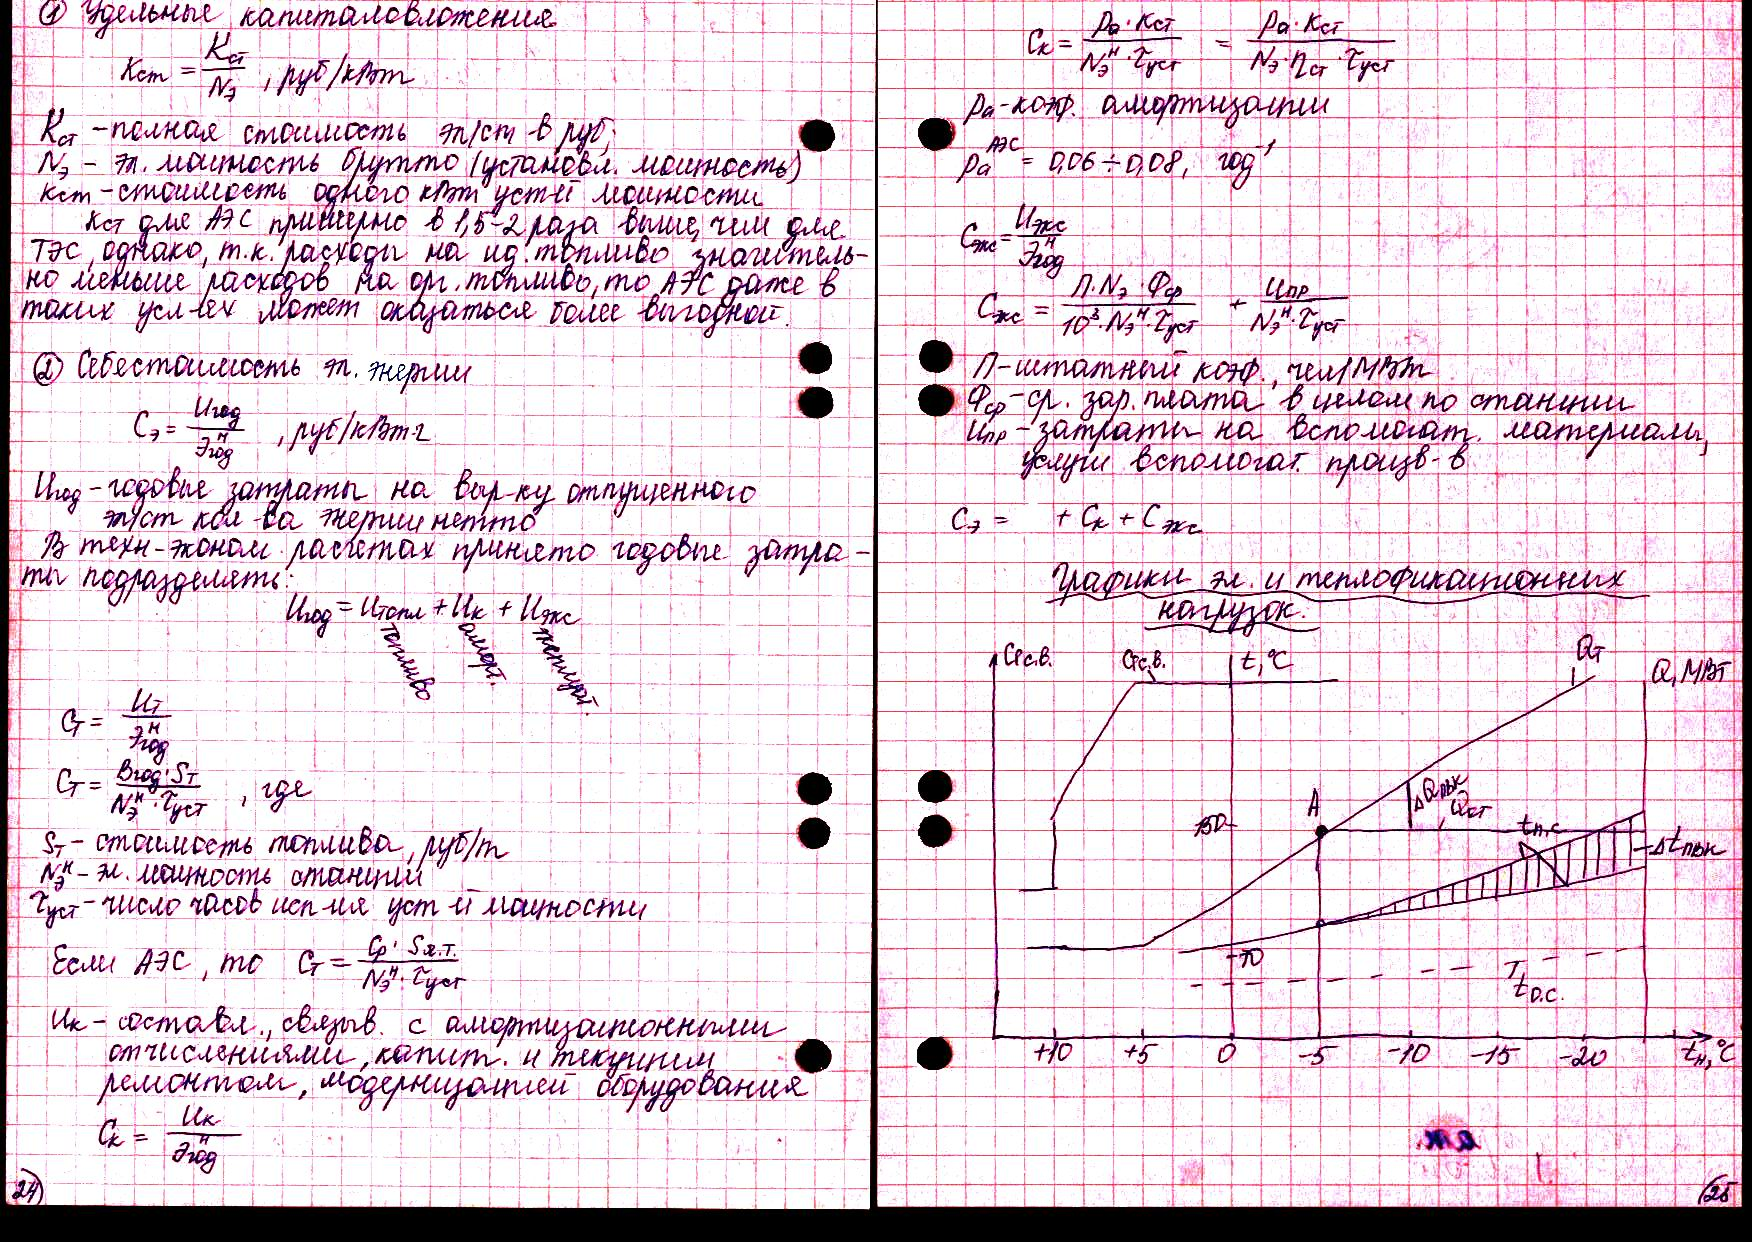 ① Удельные капиталовложения
Kст = Kст / Nэ , руб/кВт
Kст - полная стоимость эл/ст в руб;
Nэ - эл. мощность брутто (установл. мощность)
kст - стоимость одного кВт уст-й мощности
kст для АЭС примерно в 1,5-2 раза выше, чем для
ТЭС, однако, т.к. расходы на яд. топливо значитель-
но меньше расходов на орг. топливо, то АЭС даже в
таких усл-ях может оказаться более выгодной.
② Себестоимость эл. энергии
Cэ = Uгод / Эгод^н , руб/кВт·г
Uгод - годовые затраты на выр-ку отпущенного
эл/ст кол-ва энергии нетто
В техн-эконом. расчетах принято годовые затра-
ты подразделять:
Uгод = Uтопл + Uк + Uэкс
топливо аморт. эксплуат.
Cт = Uт / Эгод^н
Cт = Bгод·Sт / Nэ^н·τуст , где
Sт - стоимость топлива, руб/т
Nэ^н - эл. мощность станции
τуст - число часов исп-ия уст-й мощности
Если АЭС, то Cт = Gр·Sя.т. / Nэ^н·τуст
Uк - составл., связыв. с амортизационными
отчислениями, капит. и текущим
ремонтом, модернизацией оборудования
Cк = Uк / Эгод^н
24)
Cк = Pа·Kст / Nэ^н·τуст = Pа·Kст / Nэ·ηст·τуст
Pа - коэф. амортизации
Pа^АЭС = 0,06÷0,08, год^-1
Cэкс = Uэкс / Эгод^н
Cэкс = П·Nэ·Фср / 10³·Nэ^н·τуст + Uпр / Nэ^н·τуст
П - штатный коэф., чел/МВт
Фср - ср. зар. плата в целом по станции
Uпр - затраты на вспомогат. материалы,
услуги вспомогат. произв-в
Cэ = + Cк + Cэкс
Графики эл. и теплофикационных
нагрузок.
Gс.в. Gс.в. t,°C Qт Q, МВт
A ΔQпвк
Qст
150 tп.с.
Δtпвк
70
tо.с.
+10 +5 0 -5 -10 -15 -20 tн,°C
(25